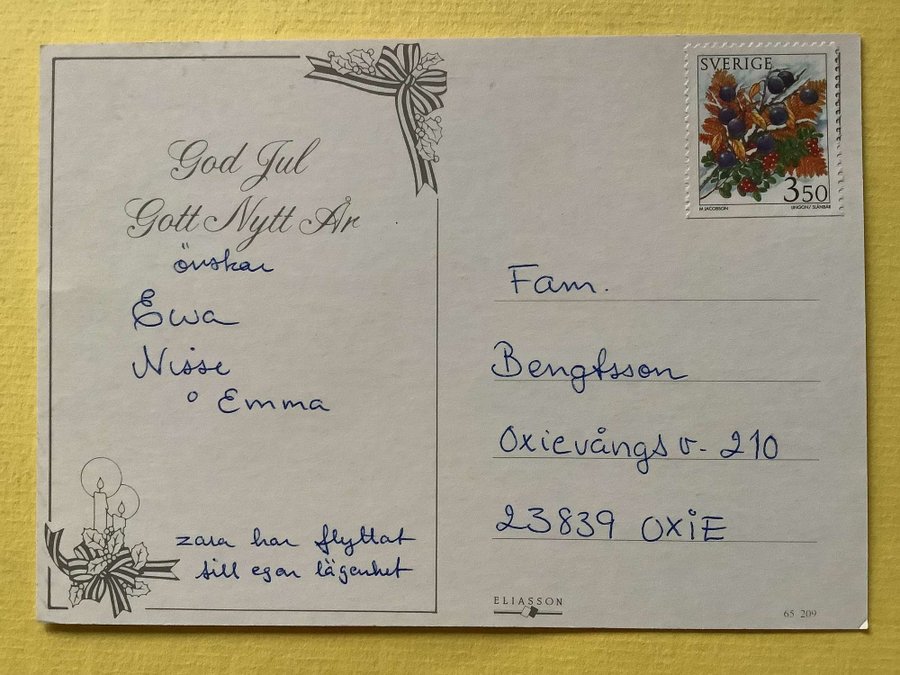 God Jul
Gott Nytt År
önskar
Ewa
Nisse
o Emma
zara har flyttat
till egen lägenhet
SVERIGE
350
M JACOBSON
LINGON/SLÅNBÄR
Fam.
Bengtsson
Oxievångs v- 210
23839 OXIE
ELIASSON
65 209